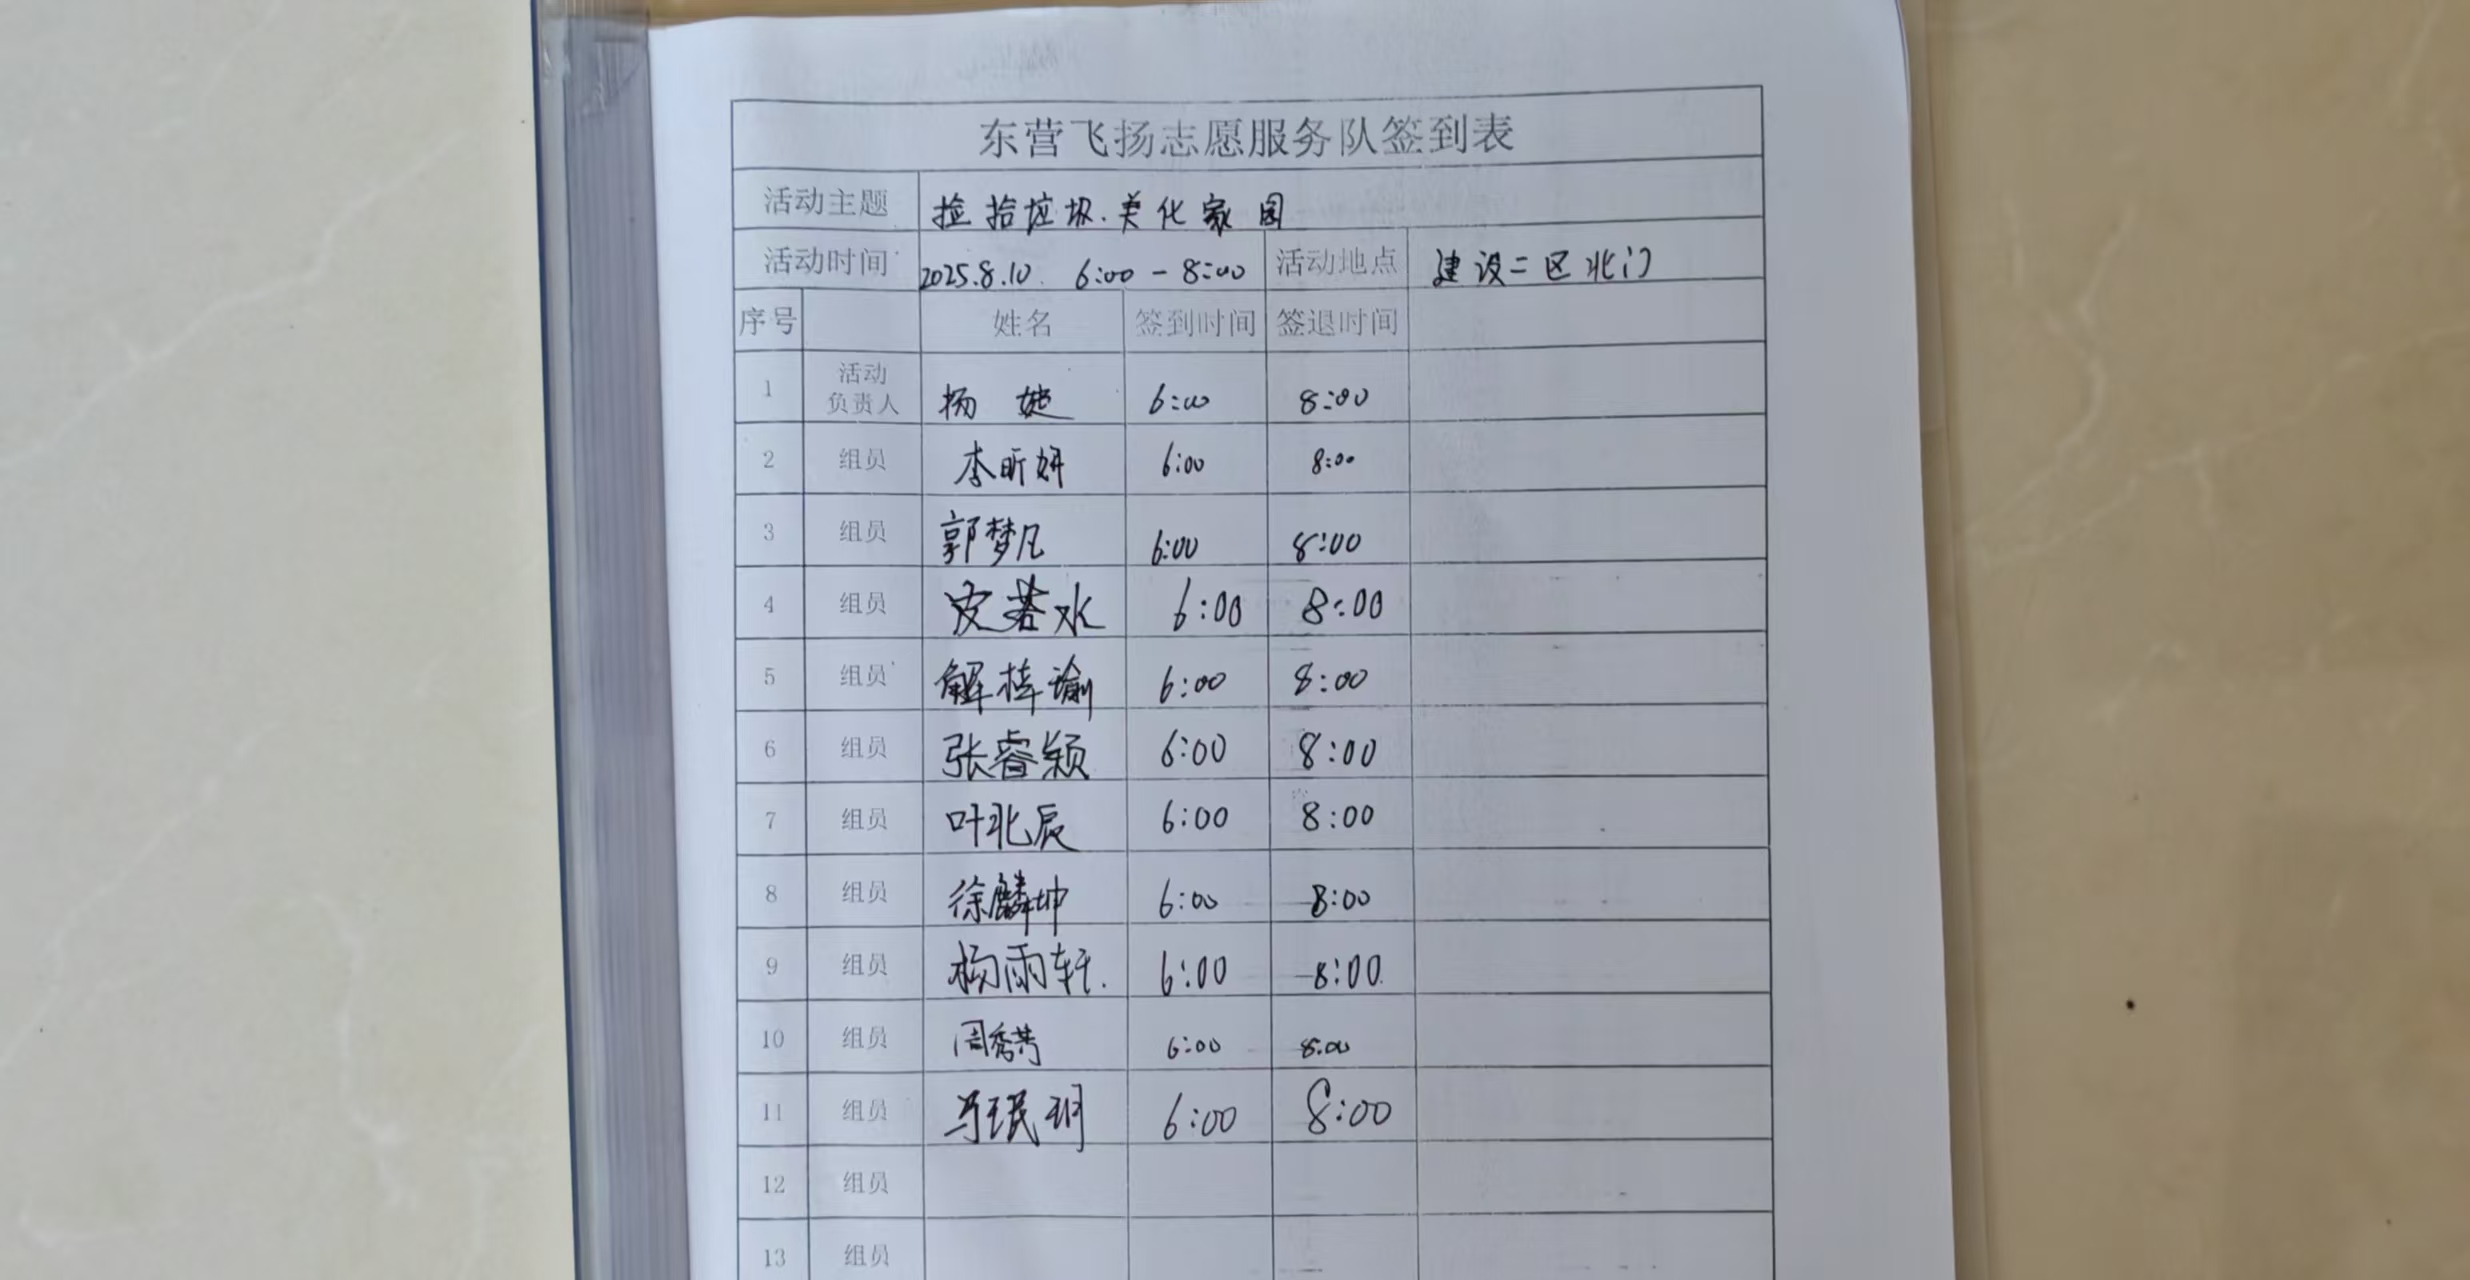 东营飞扬志愿服务队签到表
活动主题 捡拾垃圾.美化家园
活动时间 2025.8.10. 6:00-8:00 活动地点 建设二区北门
序号 姓名 签到时间 签退时间
1 活动负责人 杨 6:00 8:00
2 组员 李昕妍 6:00 8:00
3 组员 郭梦凡 6:00 8:00
4 组员 皮若水 6:00 8:00
5 组员 解梓谕 6:00 8:00
6 组员 张睿颖 6:00 8:00
7 组员 叶北辰 6:00 8:00
8 组员 徐麟坤 6:00 8:00
9 组员 杨雨轩. 6:00 8:00
10 组员 周秀芳 6:00 8:00
11 组员 马珉玥 6:00 8:00
12 组员
13 组员